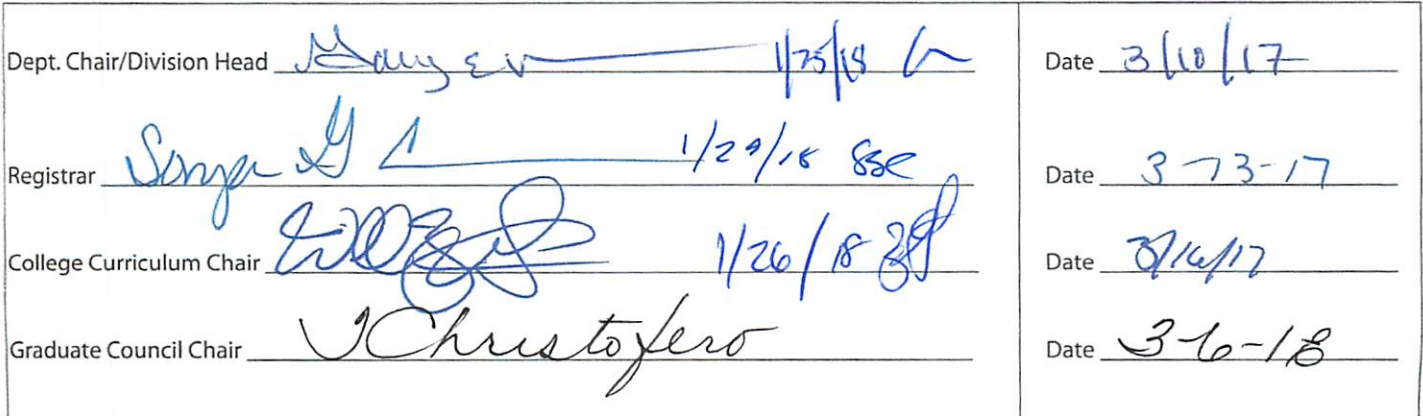 Dept. Chair/Division Head 1/25/18 Date 3/10/17
Registrar Sonja G 1/29/18 SSC Date 3-13-17
College Curriculum Chair 1/26/18 Date 3/16/17
Graduate Council Chair TChristofero Date 3-6-18